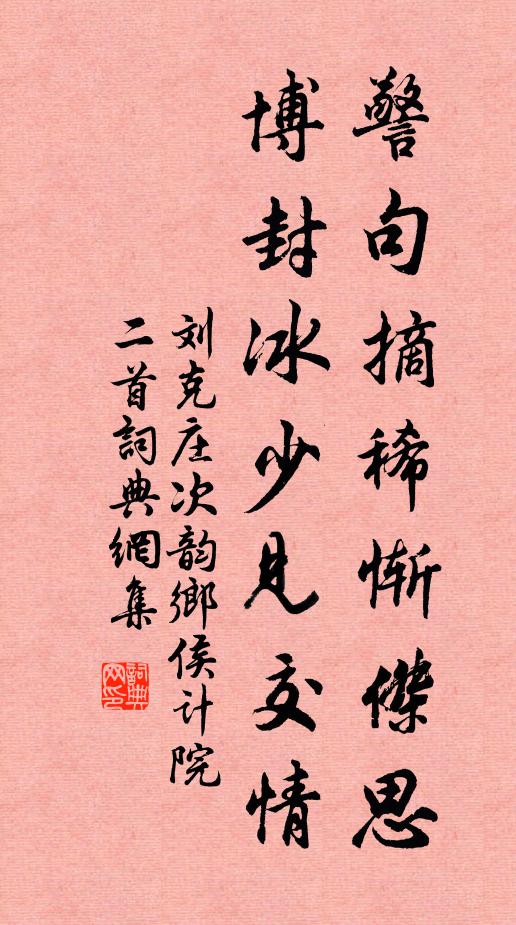 警句摘稀惭傑思
博封冰少見交情
刘克庄次韵鄉侯计院
二首詞典網集
詞典网印